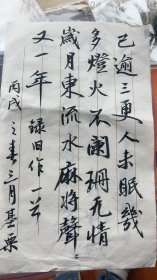 已逾三更人未眠幾
多燈火不闌珊无情
歲月東流水麻將聲
又一年 録旧作一首
丙戌之春三月基栗